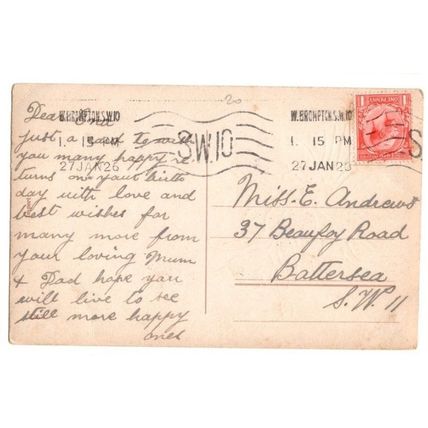 20
W.BROMPTON.S.W.10
1. 15 PM
27 JAN 26
S.W.10
W.BROMPTON.S.W.10
1. 15 PM
27 JAN 26
S.
1
1
Dear
just a card to wish
you many happy re
turns on your birth
day with love and
best wishes for
many more from
your loving Mum
& Dad hope you
will live to see
still more happy
ones
Miss. E. Andrews
37 Beaufoy Road
Battersea
S.W. 11